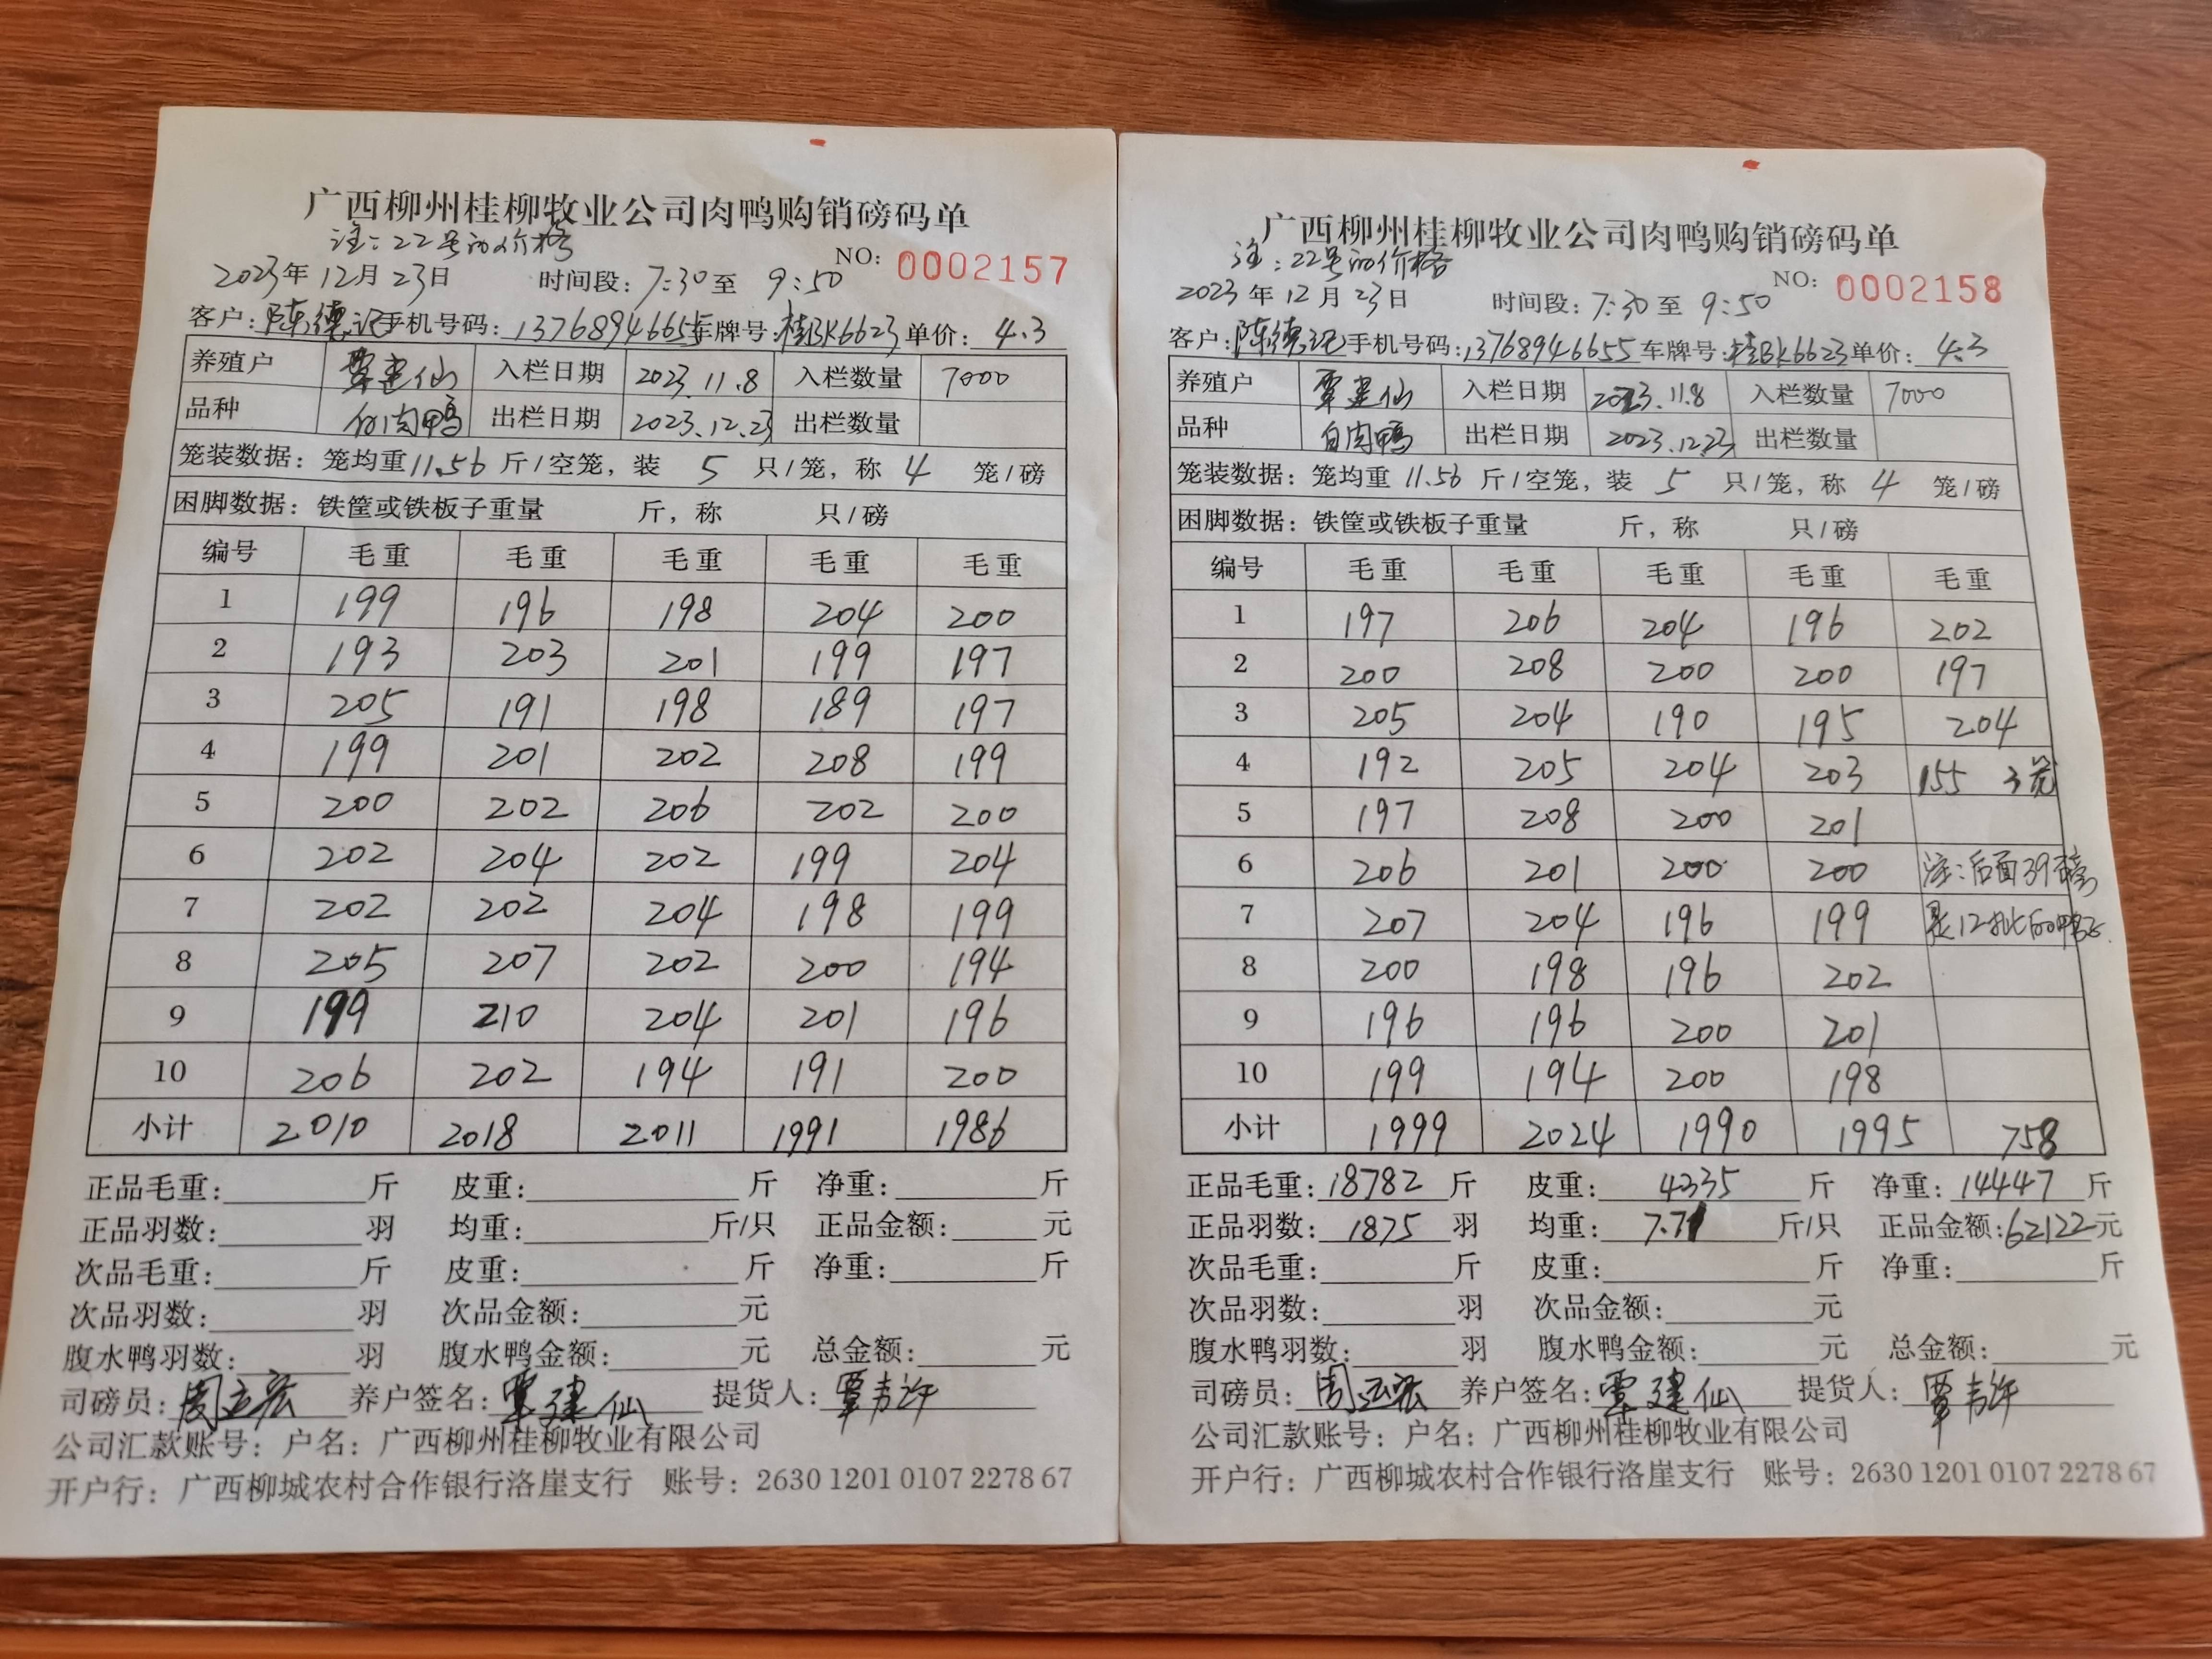 广西柳州桂柳牧业公司肉鸭购销磅码单
注:22号的价格
NO: 0002157
2023年12月23日 时间段:7:30至 9:50
客户:陈德记手机号码:13768946655车牌号:桂BK6623单价:4.3
养殖户 覃建仙 入栏日期 2023.11.8 入栏数量 7000
品种 白肉鸭 出栏日期 2023.12.23 出栏数量
笼装数据:笼均重11.56斤/空笼,装 5 只/笼,称 4 笼/磅
困脚数据:铁筐或铁板子重量 斤,称 只/磅
编号 毛重 毛重 毛重 毛重 毛重
1 199 196 198 204 200
2 193 203 201 199 197
3 205 191 198 189 197
4 199 201 202 208 199
5 200 202 206 202 200
6 202 204 202 199 204
7 202 202 204 198 199
8 205 207 202 200 194
9 199 210 204 201 196
10 206 202 194 191 200
小计 2010 2018 2011 1991 1986
正品毛重: 斤 皮重: 斤 净重: 斤
正品羽数: 羽 均重: 斤/只 正品金额: 元
次品毛重: 斤 皮重: 斤 净重: 斤
次品羽数: 羽 次品金额: 元
腹水鸭羽数: 羽 腹水鸭金额: 元 总金额: 元
司磅员: 养户签名:覃建仙 提货人:
公司汇款账号:户名:广西柳州桂柳牧业有限公司
开户行:广西柳城农村合作银行洛崖支行 账号:2630 1201 0107 2278 67
广西柳州桂柳牧业公司肉鸭购销磅码单
注:22号的价格
NO: 0002158
2023年12月23日 时间段:7:30至 9:50
客户:陈德记手机号码:13768946655车牌号:桂BK6623单价:4.3
养殖户 覃建仙 入栏日期 2023.11.8 入栏数量 7000
品种 白肉鸭 出栏日期 2023.12.23 出栏数量
笼装数据:笼均重11.56斤/空笼,装 5 只/笼,称 4 笼/磅
困脚数据:铁筐或铁板子重量 斤,称 只/磅
编号 毛重 毛重 毛重 毛重 毛重
1 197 206 204 196 202
2 200 208 200 200 197
3 205 204 190 195 204
4 192 205 204 203 155 3笼
5 197 208 200 201
6 206 201 200 200 注:后面39磅
7 207 204 196 199 是12批的鸭
8 200 198 196 202
9 196 196 200 201
10 199 194 200 198
小计 1999 2024 1990 1995 758
正品毛重:18782斤 皮重:4335斤 净重:14447斤
正品羽数:1875羽 均重:7.71斤/只 正品金额:62122元
次品毛重: 斤 皮重: 斤 净重: 斤
次品羽数: 羽 次品金额: 元
腹水鸭羽数: 羽 腹水鸭金额: 元 总金额: 元
司磅员: 养户签名:覃建仙 提货人:
公司汇款账号:户名:广西柳州桂柳牧业有限公司
开户行:广西柳城农村合作银行洛崖支行 账号:2630 1201 0107 2278 67